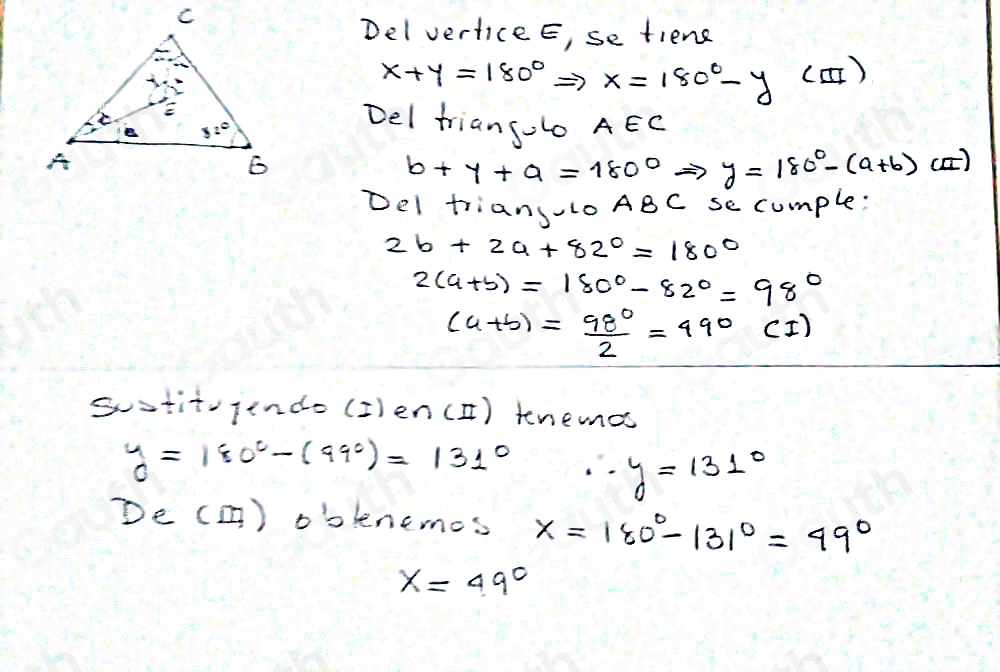 C
E
A
a
82°
B
Del vertice E, se tiene
x+y=180° ⇒ x=180°-y (III)
Del triangulo AEC
b+y+a=180° ⇒ y=180°-(a+b) (II)
Del triangulo ABC se cumple:
2b + 2a + 82° = 180°
2(a+b) = 180° - 82° = 98°
(a+b) = 98°/2 = 49° (I)
Sustituyendo (I) en (II) tenemos
y = 180° - (49°) = 131° ∴ y = 131°
De (III) obtenemos x = 180° - 131° = 49°
x = 49°